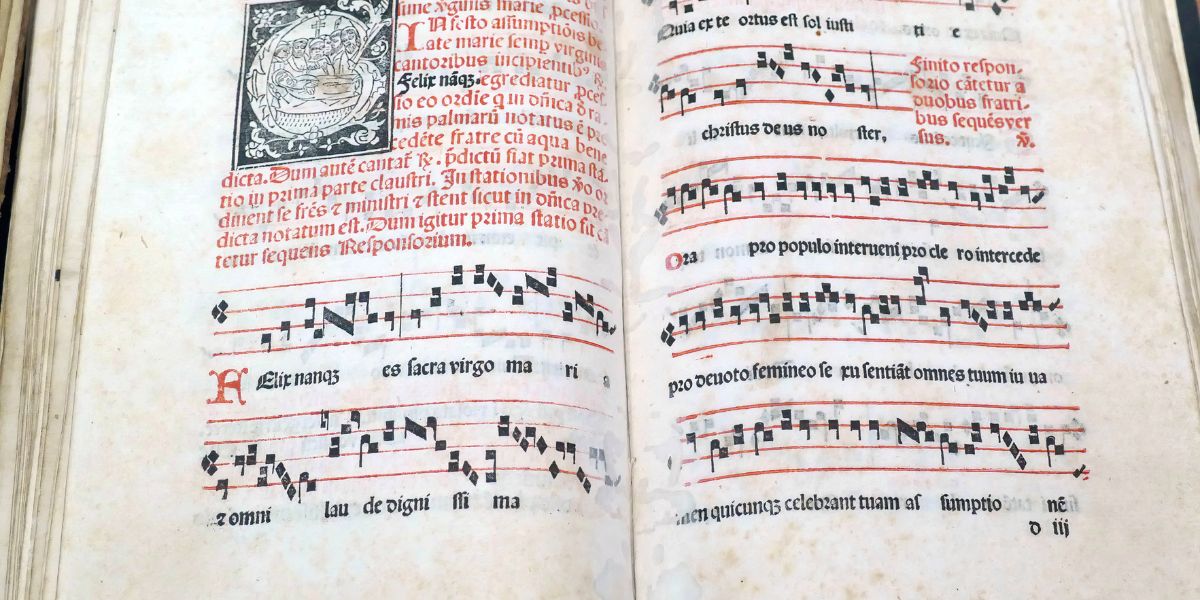 sune v̄ginis marie ,pcessio
IN festo assumptiōis be
ate marie semp virginis
cantoribus incipientib⁹ ꝶ.
Felix nāqꝫ. egrediatur ,pces
sio eo ordīe q in dn̄ica d̄ ra-
mis palmarū notatus ē pre
cedēte fratre cū aqua bene
dicta. Dum autē cantat̄ ꝶ. p̄dictū fiat prima sta
tio in prima parte claustri. In stationibus v̄o or
dinent se frēs ⁊ ministri ⁊ stent sicut in dn̄ica pre
dicta notatum est. Dum igitur prima statio fit cā
tetur sequens Responsorium.
FElix nanqꝫ es sacra virgo ma ri a
⁊ omni lau de digni ssi ma
Quia ex te ortus est sol iusti ti e
christus de us no ster,
Finito respon-
sorio cātetur a
duobus fratri-
bus sequēs ver
sus. ℣.
Ora pro populo interueni pro cle ro intercede
pro deuoto femineo se xu sentiāt omnes tuum iu ua
men quicunqꝫ celebrant tuam as sumptio nē
d iij